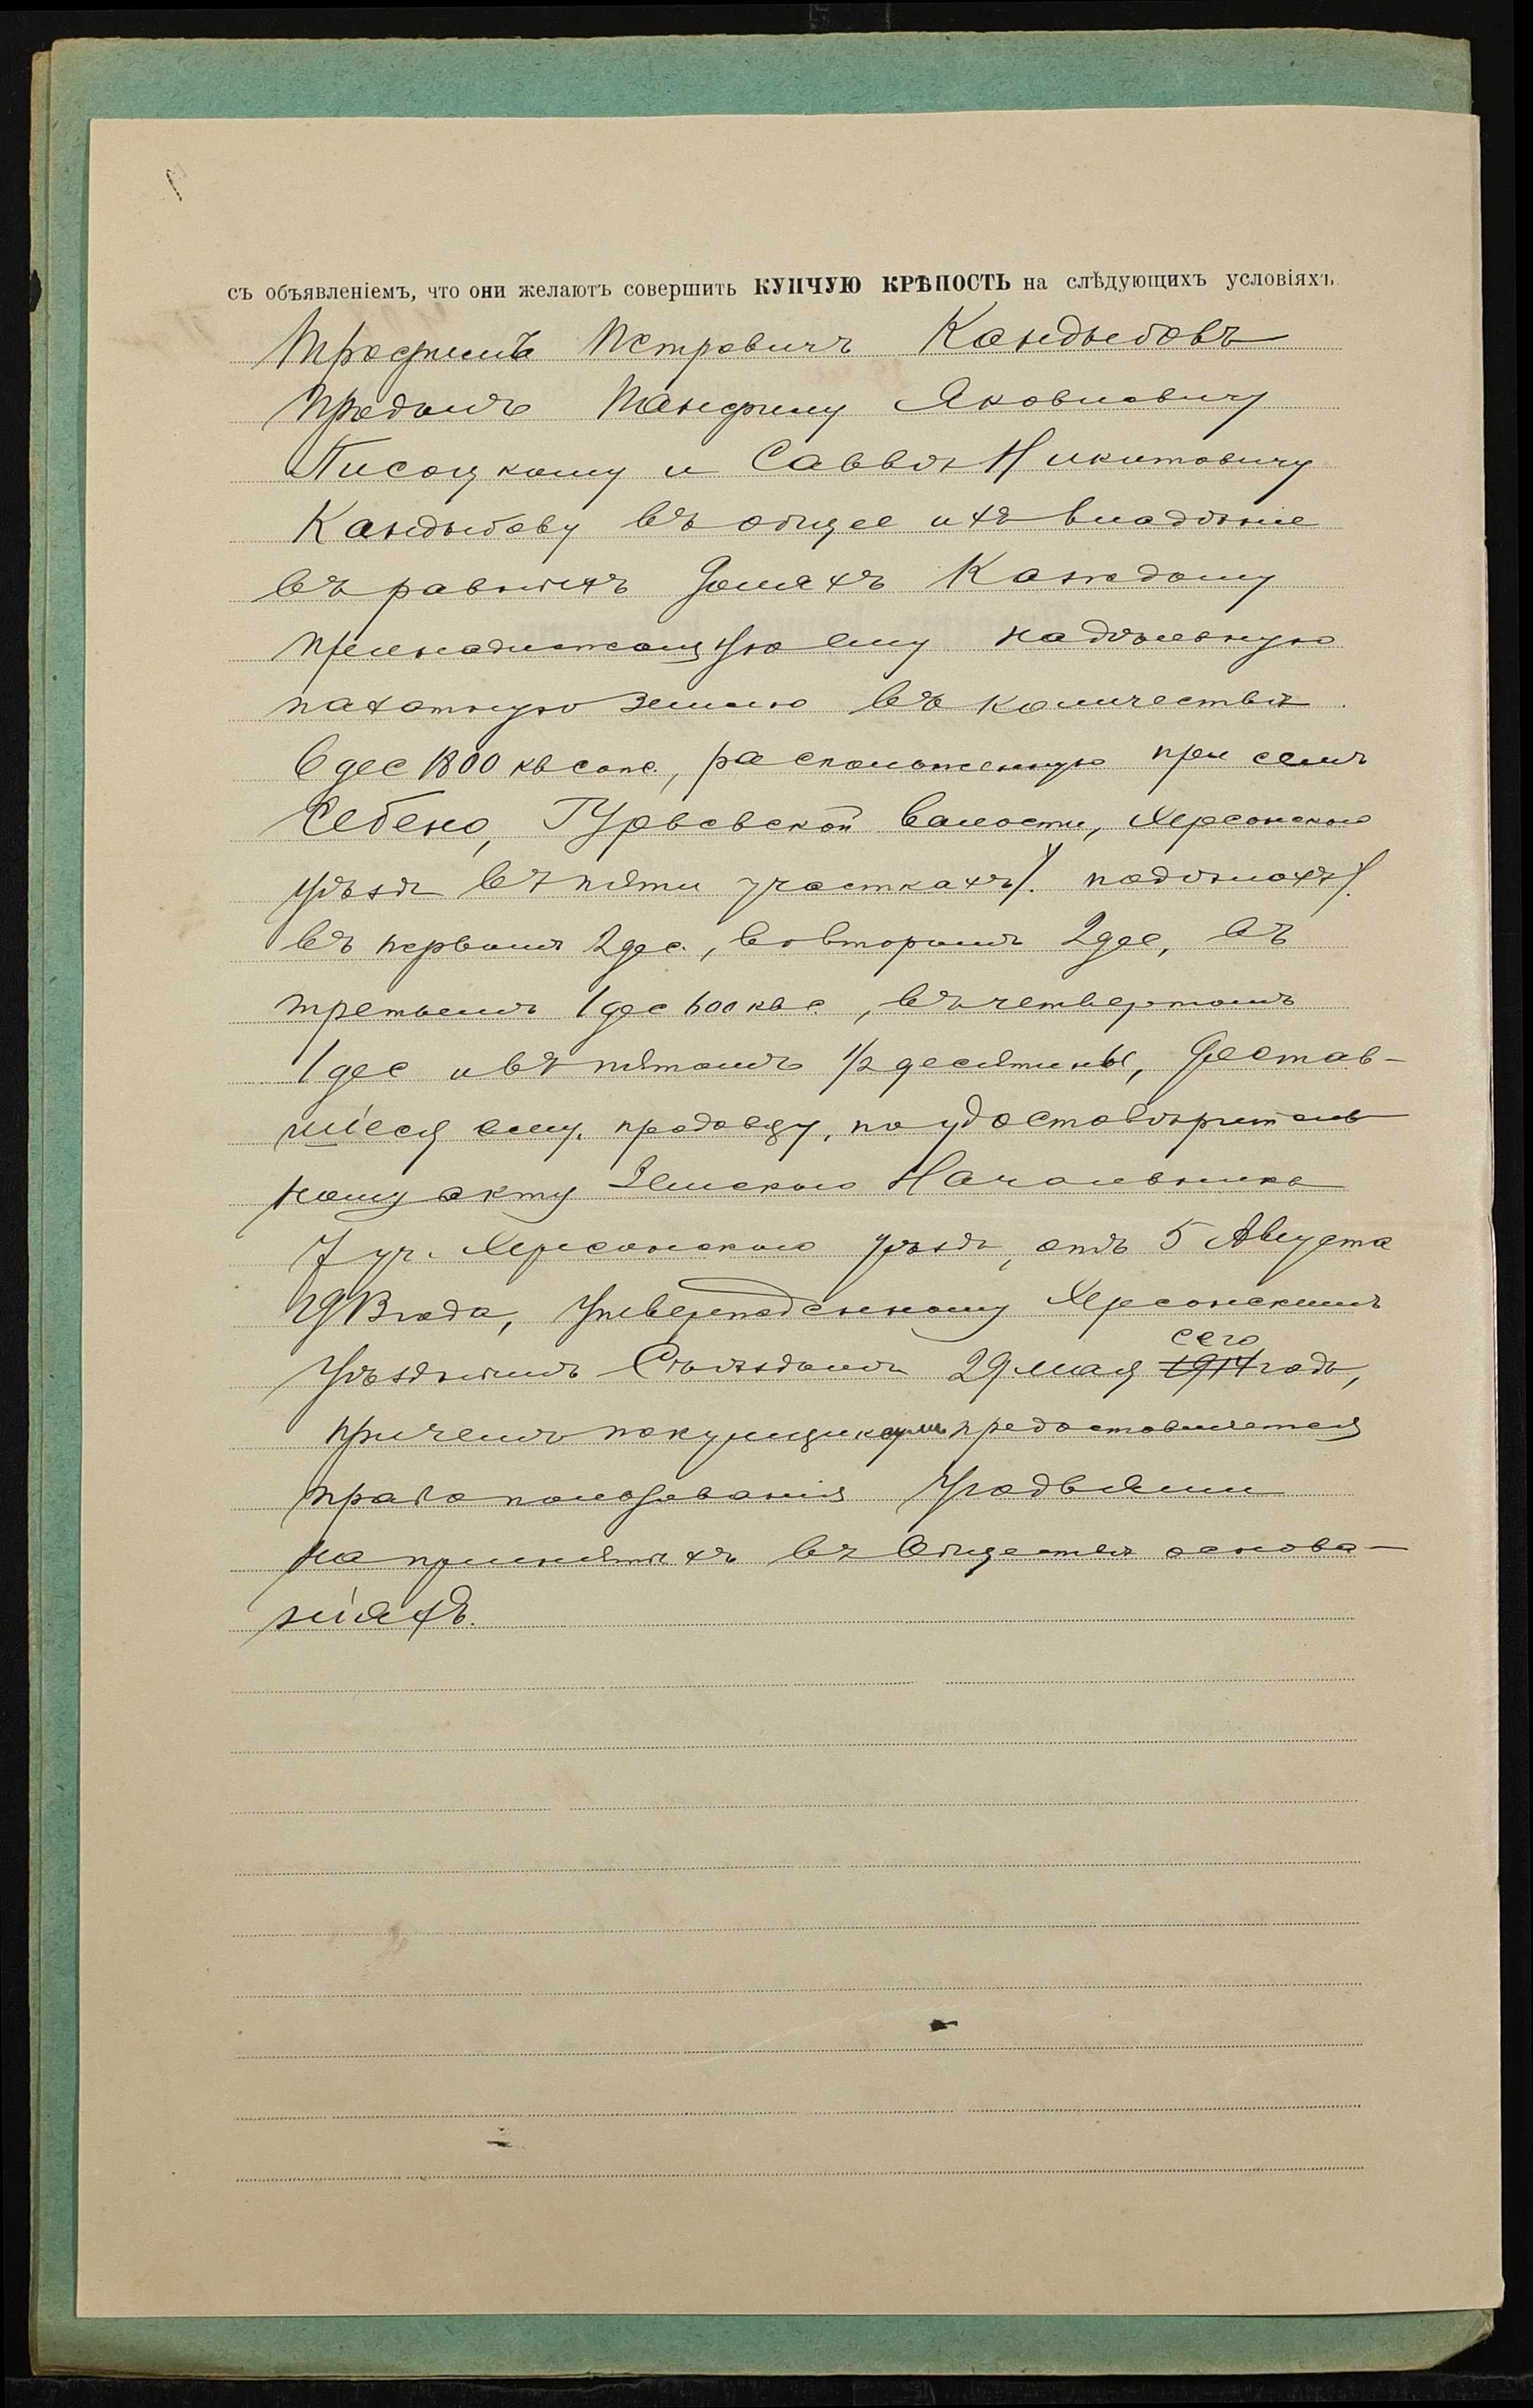 съ объявленіемъ, что они желаютъ совершить КУПЧУЮ КРѢПОСТЬ на слѣдующихъ условіяхъ
Трофимъ Петровичъ Кандыбовъ
продалъ Панфилу Яковлевичу
Писоцкому и Саввѣ Никитовичу
Кандыбову въ общее ихъ владѣніе
въ равныхъ доляхъ каждому
принадлежащую ему надѣльную
пахатную землю въ количествѣ
6 дес 1800 кв саж., расположенную при селѣ
Себено, Гурьевской волости, Херсонскаго
уѣзда въ пяти участкахъ/. надѣлахъ/.
въ первомъ 2 дес., во второмъ 2 дес, въ
третьемъ 1 дес 600 кв с., въ четвертомъ
1 дес и въ пятомъ 1/2 десятины, достав-
шіеся ему, продавцу, по удостовѣритель
ному акту Земскаго Начальника
7 уч. Херсонскаго уѣзда, отъ 5 Августа
1913 года, утвержденному Херсонскимъ
сего
Уѣзднымъ Съѣздомъ 29 мая 1914 года,
причемъ покупщикамъ предоставляется
право пользованія угодьями
на принятыхъ въ Обществѣ основа-
ніяхъ.